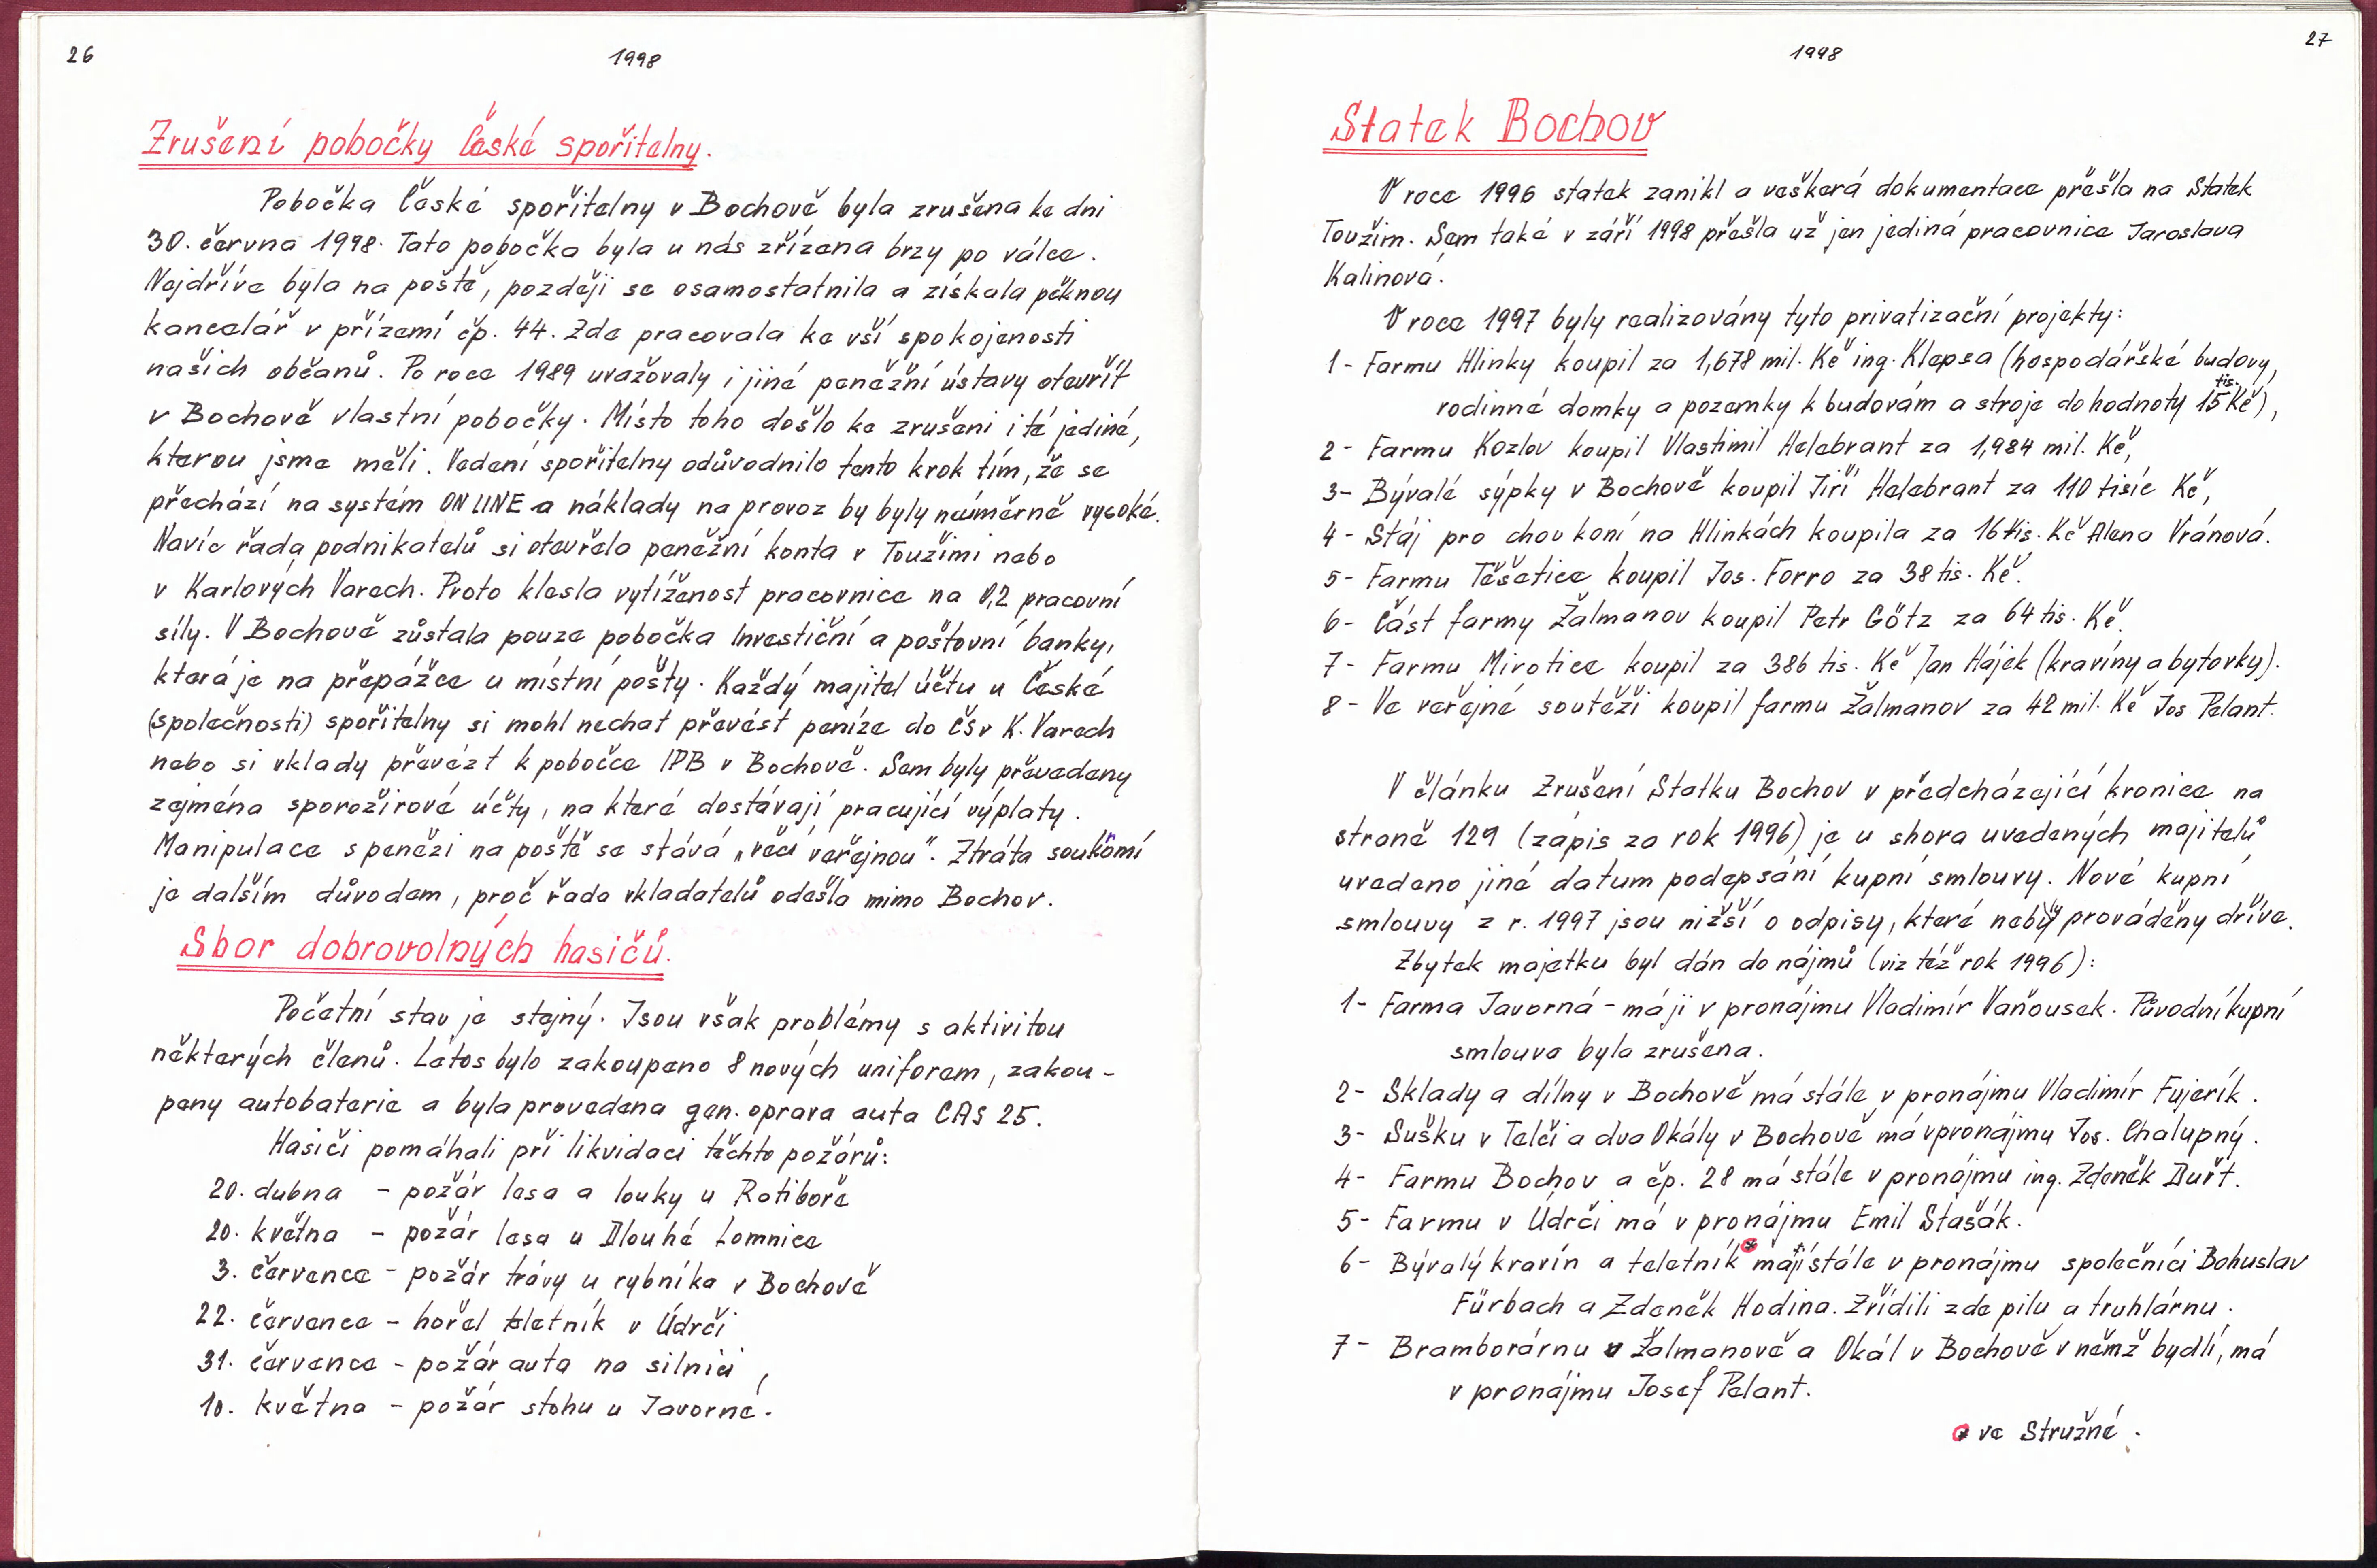 26
1998
Zrušení pobočky České spořitelny.
Pobočka České spořitelny v Bochově byla zrušena ke dni
30. června 1998. Tato pobočka byla u nás zřízena brzy po válce.
Nejdříve byla na poště, později se osamostatnila a získala pěknou
kancelář v přízemí čp. 44. Zde pracovala ke vší spokojenosti
našich občanů. Po roce 1989 uvažovaly i jiné peněžní ústavy otevřít
v Bochově vlastní pobočky. Místo toho došlo ke zrušení i té jediné,
kterou jsme měli. Vedení spořitelny odůvodnilo tento krok tím, že se
přechází na systém ON LINE a náklady na provoz by byly neúměrně vysoké.
Navíc řada podnikatelů si otevřela peněžní konta v Toužimi nebo
v Karlových Varech. Proto klesla vytíženost pracovnice na 0,2 pracovní
síly. V Bochově zůstala pouze pobočka Investiční a poštovní banky,
která je na přepážce u místní pošty. Každý majitel účtu u České
(společnosti) spořitelny si mohl nechat převést peníze do ČS v K. Varech
nebo si vklady převézt k pobočce IPB v Bochově. Sem byly převedeny
zejména sporožirové účty, na které dostávají pracující výplaty.
Manipulace s penězi na poště se stává „věcí veřejnou". Ztráta soukromí
je dalším důvodem, proč řada vkladatelů odešla mimo Bochov.
Sbor dobrovolných hasičů.
Početní stav je stejný. Jsou však problémy s aktivitou
některých členů. Letos bylo zakoupeno 8 nových uniforem, zakou-
peny autobaterie a byla provedena gen. oprava auta CAS 25.
Hasiči pomáhali při likvidaci těchto požárů:
20. dubna - požár lesa a louky u Ratiboře
20. května - požár lesa u Dlouhé Lomnice
3. července - požár trávy u rybníka v Bochově
22. července - hořel teletník v Údrči
31. července - požár auta na silnici,
10. května - požár stohu u Javorné.
27
1998
Statek Bochov
V roce 1996 statek zanikl a veškerá dokumentace přešla na Statek
Toužim. Sem také v září 1998 přešla už jen jediná pracovnice Jaroslava
Kalinová.
V roce 1997 byly realizovány tyto privatizační projekty:
1- Farmu Hlinky koupil za 1,678 mil. Kč ing. Klepsa (hospodářské budovy,
rodinné domky a pozemky k budovám a stroje do hodnoty 15 tis. Kč),
2- Farmu Kozlov koupil Vlastimil Helebrant za 1,984 mil. Kč,
3- Bývalé sýpky v Bochově koupil Jiří Helebrant za 110 tisíc Kč,
4- Stáj pro chov koní na Hlinkách koupila za 16 tis. Kč Alena Vránová.
5- Farmu Těšetice koupil Jos. Forro za 38 tis. Kč.
6- Část farmy Žalmanov koupil Petr Götz za 64 tis. Kč.
7- Farmu Mirotice koupil za 386 tis. Kč Jan Hájek (kravíny a bytovky).
8- Ve veřejné soutěži koupil farmu Žalmanov za 42 mil. Kč Jos. Pelant.
V článku Zrušení Statku Bochov v předcházející kronice na
straně 129 (zápis za rok 1996) je u shora uvedených majitelů
uvedeno jiné datum podepsání kupní smlouvy. Nové kupní
smlouvy z r. 1997 jsou nižší o odpisy, které nebyly prováděny dříve.
Zbytek majetku byl dán do nájmů (viz též rok 1996):
1- Farma Javorná - máji v pronájmu Vladimír Vaňousek. Původní kupní
smlouva byla zrušena.
2- Sklady a dílny v Bochově má stále v pronájmu Vladimír Fujerík.
3- Sušku v Telči a dva Okály v Bochově má v pronájmu Jos. Chalupný.
4- Farmu Bochov a čp. 28 má stále v pronájmu ing. Zdeněk Duřt.
5- Farmu v Údrči má v pronájmu Emil Stašák.
6- Bývalý kravín a teletník * mají stále v pronájmu společníci Bohuslav
Fürbach a Zdeněk Hodina. Zřídili zde pilu a truhlárnu.
7- Bramborárnu v Žalmanově a Okál v Bochově v němž bydlí, má
v pronájmu Josef Pelant.
* ve Stružné.